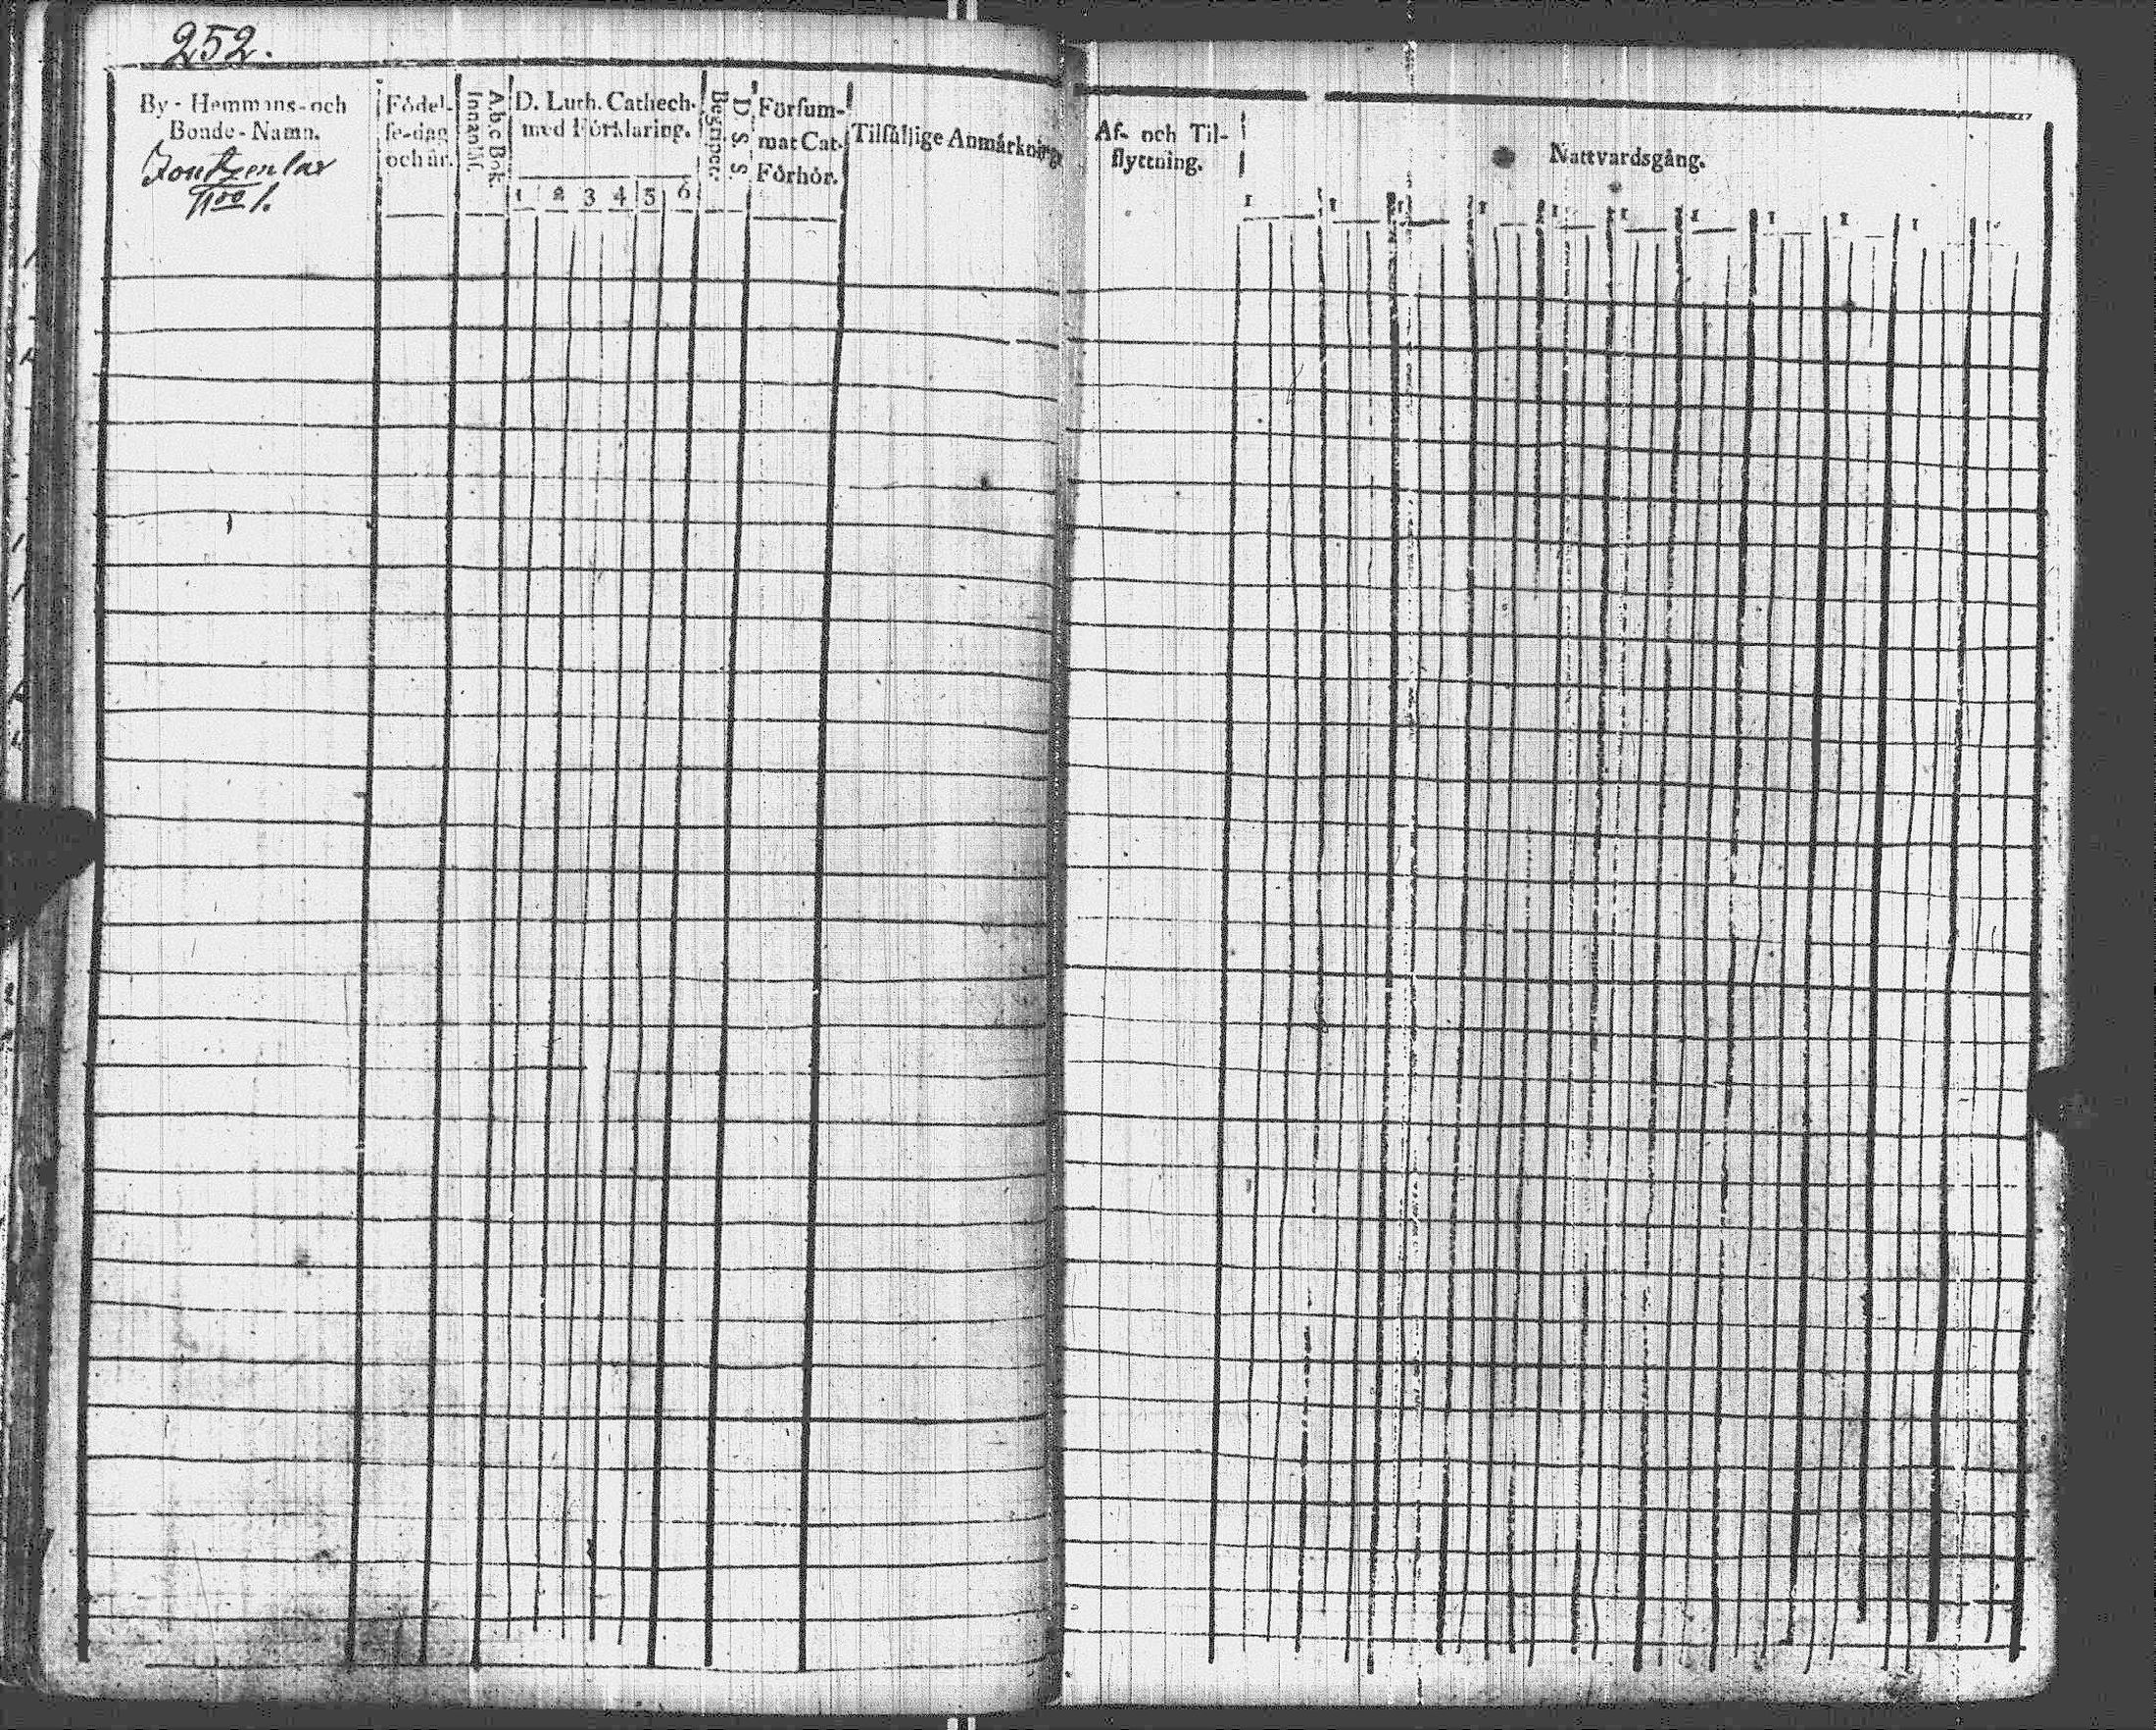 252.
By- Hemmans- och
Bonde-Namn.
N:o 1.
Födel-
se-dag
och år.
Abc Bok.
Innant.
D. Luth. Cathech.
med Förklaring.
1 2 3 4 5 6
Begriper.
D. S. S.
Försum-
mat Cat.
Förhör.
Tilfällige Anmärkning
Af- och Til-
flyttning.
Nattvardsgång.
1 1 1 1 1 1 1 1 1 1